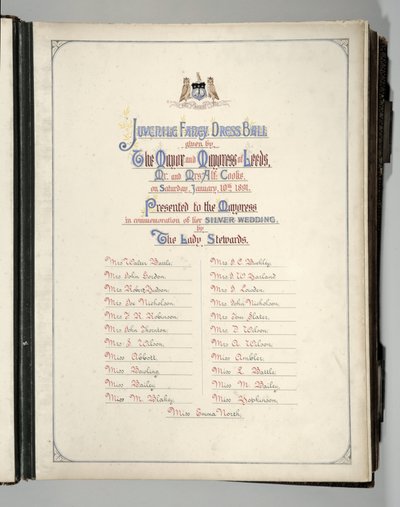 Juvenile Fancy Dress Ball
given by
The Mayor and Mayoress of Leeds,
Mr. and Mrs Alf. Cooke,
on Saturday, January 10th 1891.
Presented to the Mayoress
in commemoration of her SILVER WEDDING,
by
The Lady Stewards.
Mrs Walter Battle.
Mrs John Gordon.
Mrs Robert Hudson.
Mrs Joe Nicholson.
Mrs F. R. Robinson.
Mrs John Thornton.
Mrs E. Wilson.
Miss Abbott.
Miss Bowling.
Miss Bailey.
Miss M. Blakey.
Mrs J. C.
Mrs J. W. Harland
Mrs J. Lawden.
Mrs John Nicholson.
Mrs Tom Slater.
Mrs D. Wilson.
Mrs A. Wilson.
Miss Ambler.
Miss L. Battle.
Miss M. Bailey.
Miss Hopkinson.
Miss Emma North.